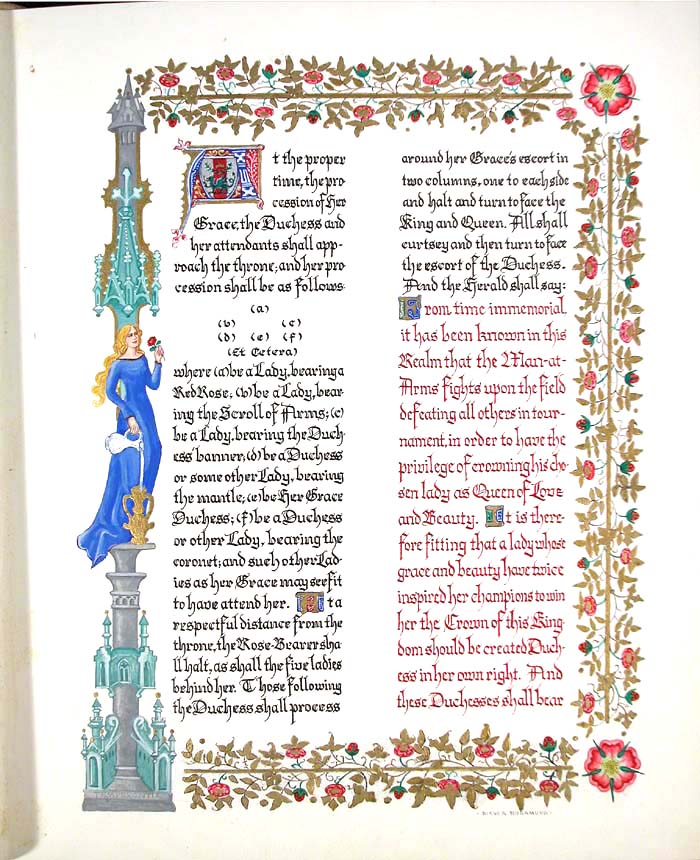 At the proper
time, the pro-
cession of Her
Grace, the Duchess and
her attendants shall app-
roach the throne; and her pro
cession shall be as follows:
(a)
(b) (c)
(d) (e) (f)
(Et Cetera)
where (a) be a Lady, bearing a
Red Rose; (b) be a Lady, bear-
ing the Scroll of Arms; (c)
be a Lady, bearing the Duch-
ess' banner; (d) be a Duchess
or some other Lady, bearing
the mantle; (e) be Her Grace
Duchess; (f) be a Duchess
or other Lady, bearing the
coronet; and such other Lad-
ies as her Grace may see fit
to have attend her. At a
respectful distance from the
throne, the Rose-Bearer sha
ll halt, as shall the five ladies
behind her. Those following
the Duchess shall process
around her Grace's escort in
two columns, one to each side
and halt and turn to face the
King and Queen. All shall
curtsey and then turn to face
the escort of the Duchess.
And the Herald shall say:
From time immemorial
it has been known in this
Realm that the Man-at-
Arms fights upon the field
defeating all others in tour-
nament, in order to have the
privilege of crowning his cho-
sen lady as Queen of Love
and Beauty. It is there-
fore fitting that a lady whose
grace and beauty have twice
inspired her champions to win
her the Crown of this King-
dom should be created Duch-
ess in her own right. And
these Duchesses shall bear